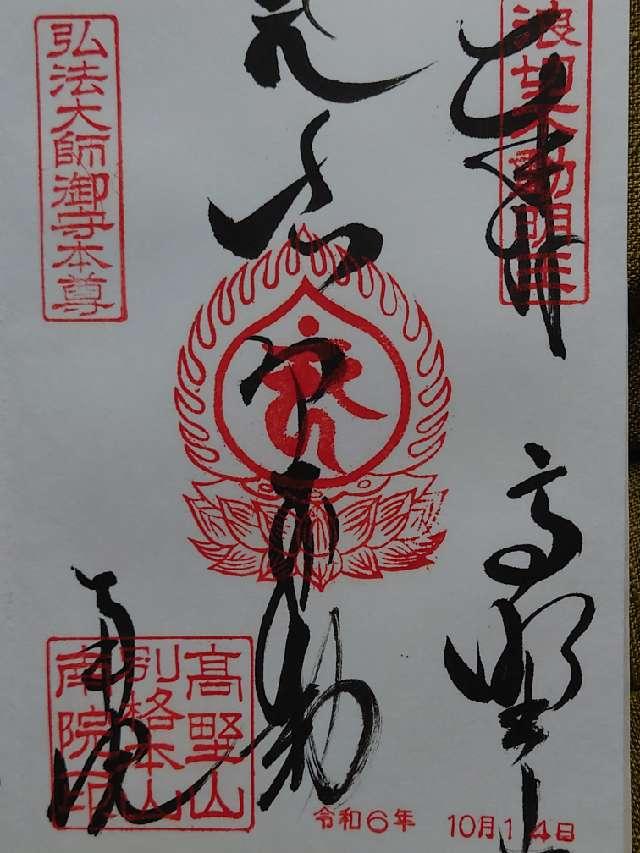 奉拝
高野山
浪切不動明王
弘法大師御守本尊
南院
高野山
別格本山
南院印
令和6年 10月14日